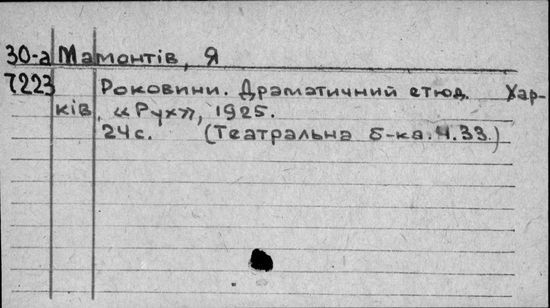 30-а Мамонтів, Я
7223
Роковини. Драматичний етюд. Хар-
ків, «Рух», 1925.
24с. (Театральна б-ка. Ч.33.)